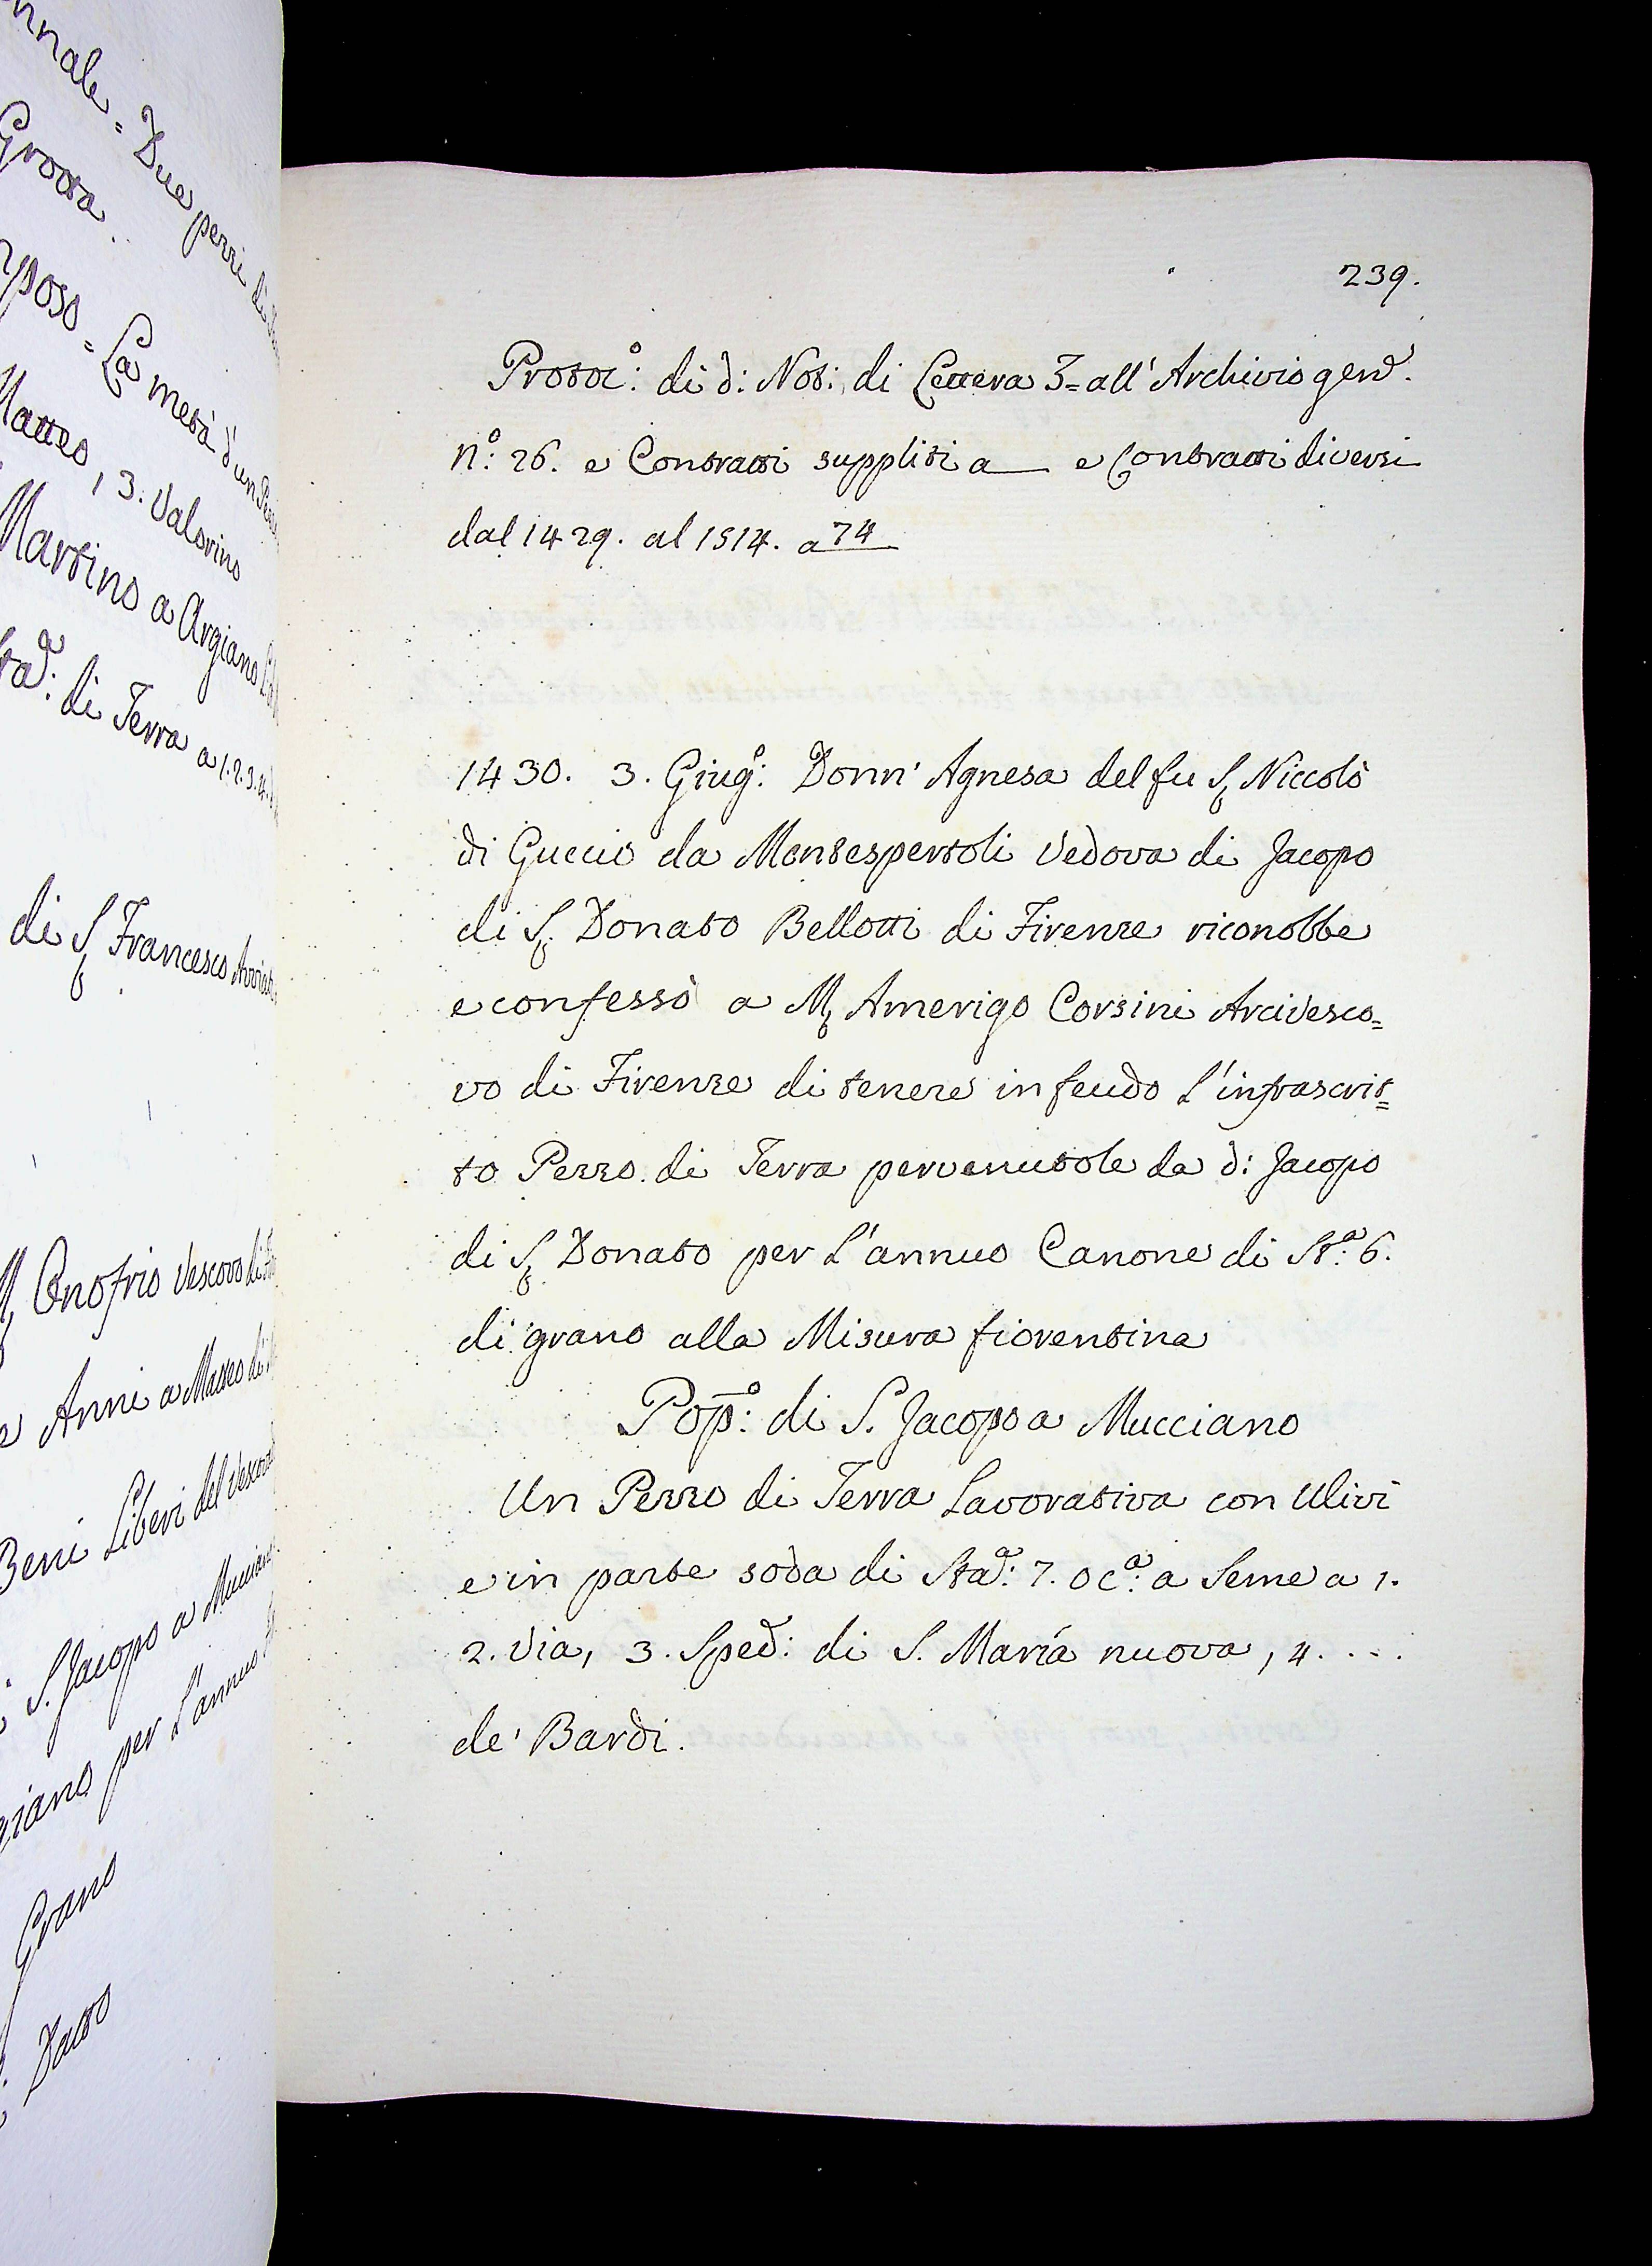 nnale = Due pezzi di
Grossa
poso = La metà d'un
Matteo, 3. Valorino
Martino a Argiano
Sta:ª di Terra a 1. 2. 3. 4.
di S. Francesco
M. Onofrio Vescovo di
Anni a Matteo di
Beni Liberi del Vescovo
S. Jacopo a Mucciano
ciano per l'annuo
Grano
Datto
239.
Protoc:º di d: Not: di Lettera 3 = all' Archivio gen.
nº: 26. e Contratti suppliti a ___ e Contratti diversi
dal 1429. al 1514. a 74
1430. 3. Giug:º Donn' Agnesa del fu S. Niccolò
di Guccio da Montespertoli Vedova di Jacopo
di S. Donato Bellotti di Firenze riconobbe
e confessò a M. Amerigo Corsini Arcivesco=
vo di Firenze di tenere in feudo l'infrascrit=
to Pezzo di Terra pervenutole da d: Jacopo
di S. Donato per l'annuo Canone di St:ª 6.
di grano alla Misura fiorentina
Pop:º di S. Jacopo a Mucciano
Un Pezzo di Terra Lavorativa con Ulivi
e in parte soda di Sta:ª 7. o c:ª a Seme a 1.
2. Via, 3. Sped: di S. Maria nuova, 4. ...
de' Bardi.